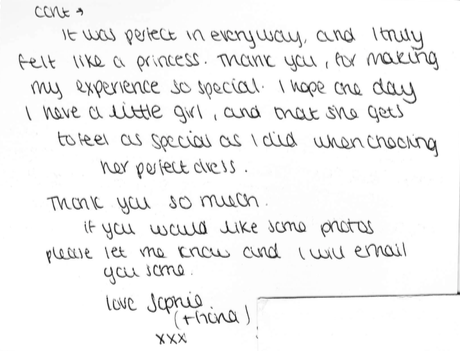 cont →
It was perfect in everyway, and I truly
felt like a princess. Thank you, for making
my experience so special. I hope one day
I have a little girl, and that she gets
to feel as special as I did when choosing
her perfect dress.
Thank you so much.
if you would like some photos
please let me know and I will email
you some.
love Sophie
xxx